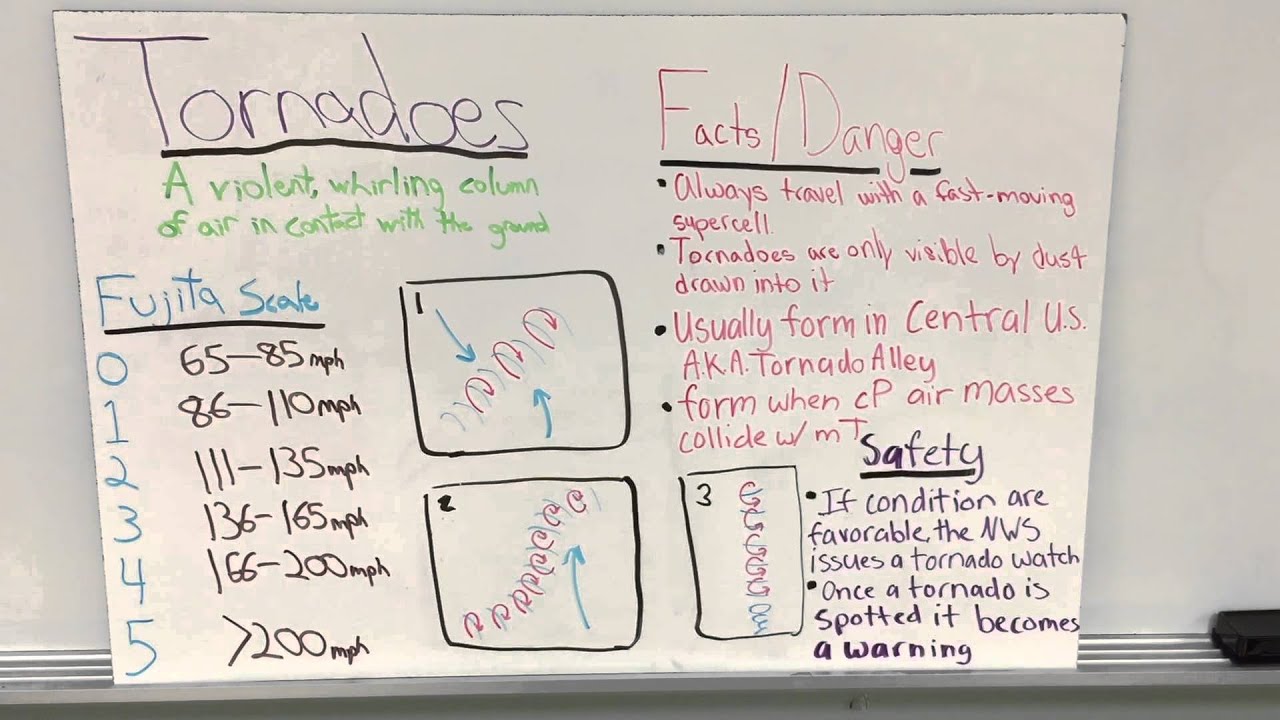 Tornadoes
A violent, whirling column
of air in contact with the ground
Fujita Scale
0 65-85mph
1 86-110mph
2 111-135mph
3 136-165mph
4 166-200mph
5 >200mph
1
2
Facts/Danger
• Always travel with a fast-moving
supercell.
• Tornadoes are only visible by dust
drawn into it
• Usually form in Central U.S.
A.K.A. Tornado Alley
• form when cP air masses
collide w/ mT
3
Safety
• If condition are
favorable, the NWS
issues a tornado watch
• Once a tornado is
spotted it becomes
a warning